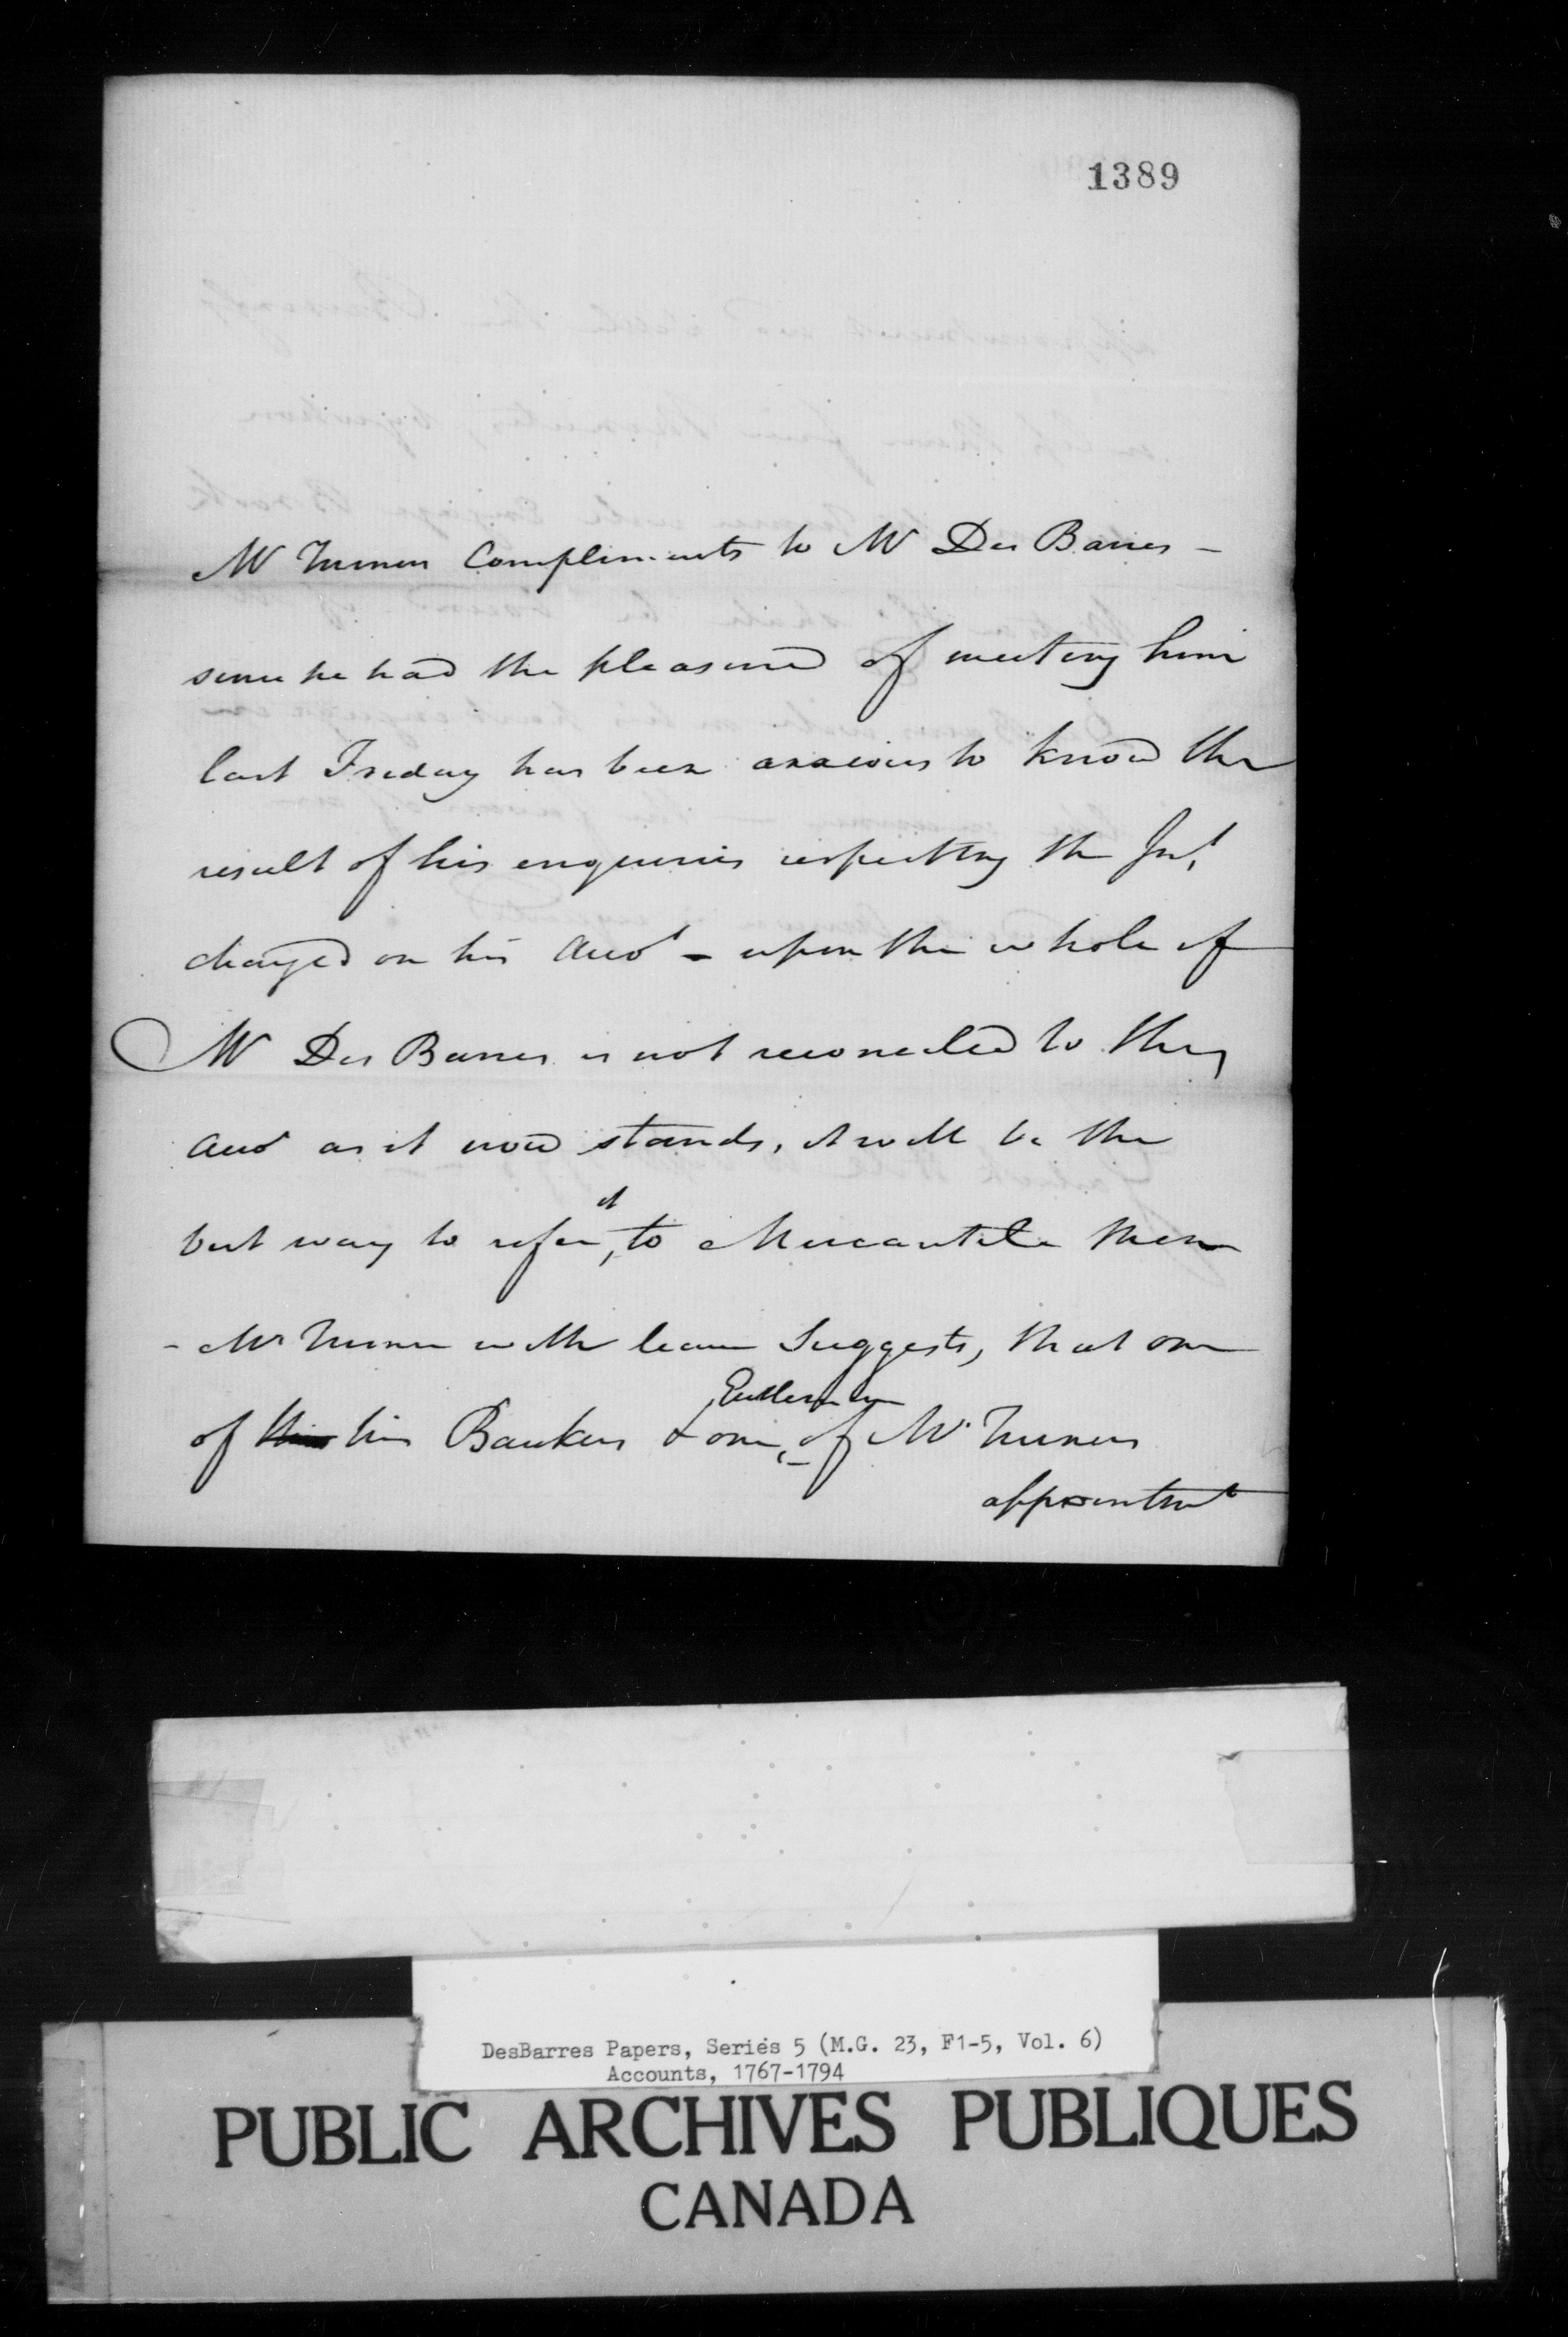 1389
Mr Turners Compliments to Mr Des Barres -
since he had the pleasure of meeting him
last Friday has been anxious to know the
result of his enquiries respecting the Int
charged on his Acco - upon the whole if
Mr Des Barres is not reconciled to the
Acco as it now stands, it will be the
best way to refer it to Mercantile Men
- Mr Turner with leave Suggests, that one
of his Bankers & one Gentleman of Mr Turners
appointmt
DesBarres Papers, Series 5 (M.G. 23, F1-5, Vol. 6)
Accounts, 1767-1794
PUBLIC ARCHIVES PUBLIQUES
CANADA